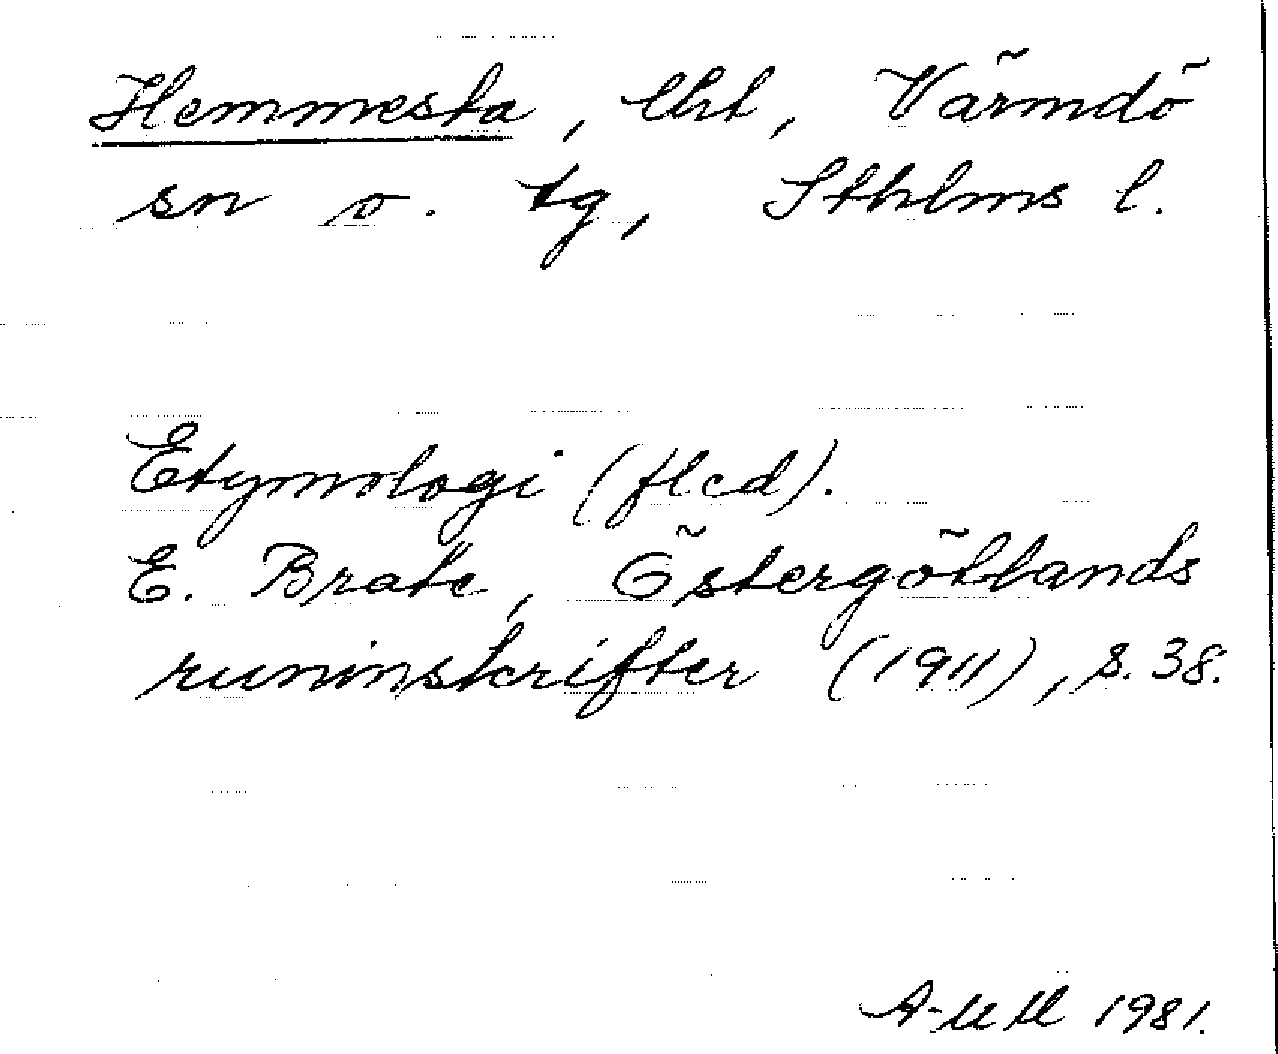 Hemmesta, Urt, Värmdö
sn o. tg, Sthlms l.
Etymologi (flcd).
E. Brate, Östergötlands
runinskrifter (1911), s. 38.
1981.